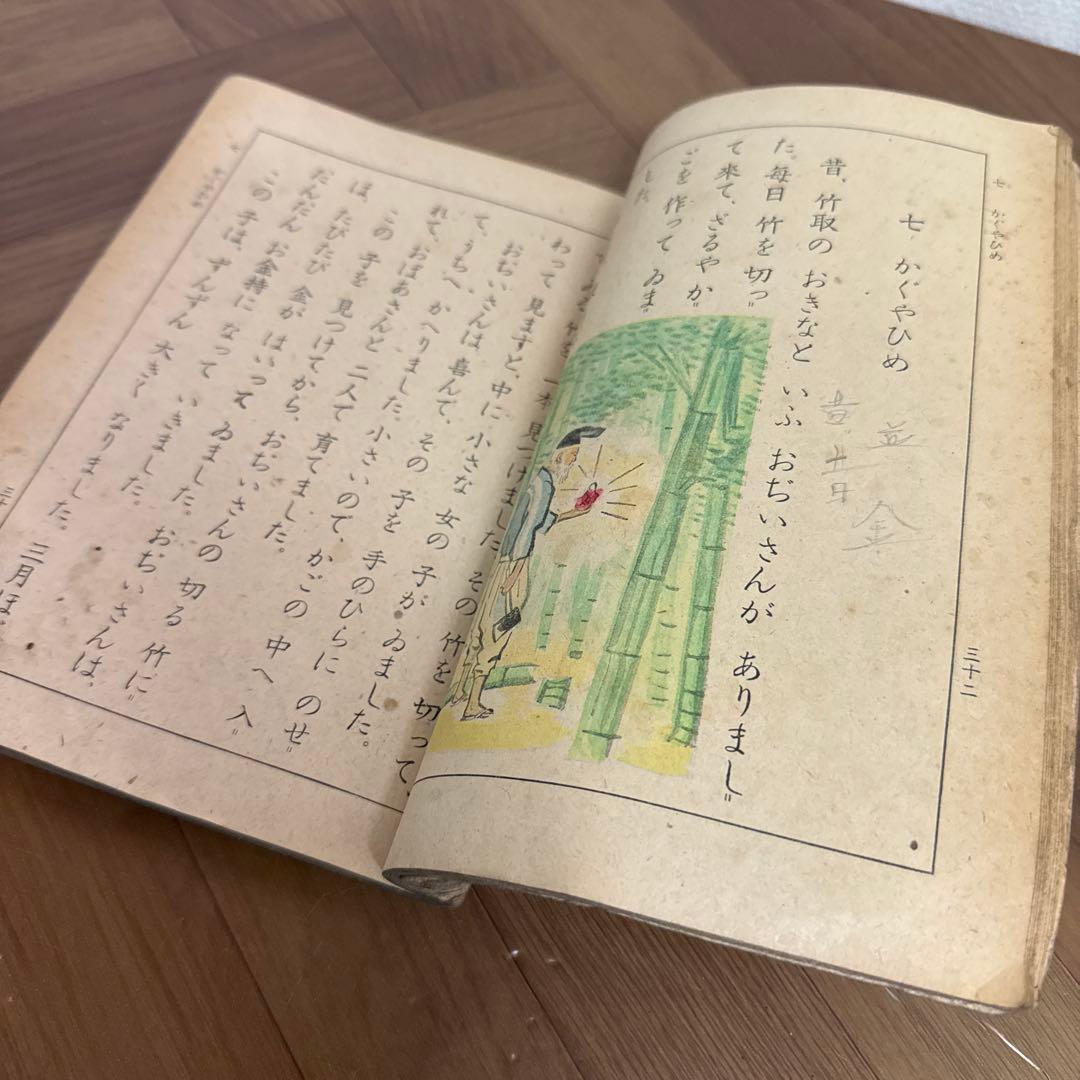 七 かぐやひめ
三十二
七 かぐやひめ
昔、竹取の おきなと いふ おぢいさんが ありまし〃
た。毎日 竹を 切っ〃
て 來て、ざるや か〃
ごを 作って ゐま〃
した。
竹を 一本 見つけました。その 竹を 切って、
わって 見ますと、中に 小さな 女の 子が ゐました。
おぢいさんは、喜んで、その 子を 手のひらに のせ〃
て、うちへ かへりました。小さいので、かごの 中へ 入〃
れて、おばあさんと 二人で 育てました。
この 子を 見つけてから、おぢいさんの 切る 竹に〃
は、たびたび 金が はいって ゐました。おぢいさんは、
だんだん お金持に なって いきました。
この 子は、ずんずん 大きく なりました。三月ほ
金